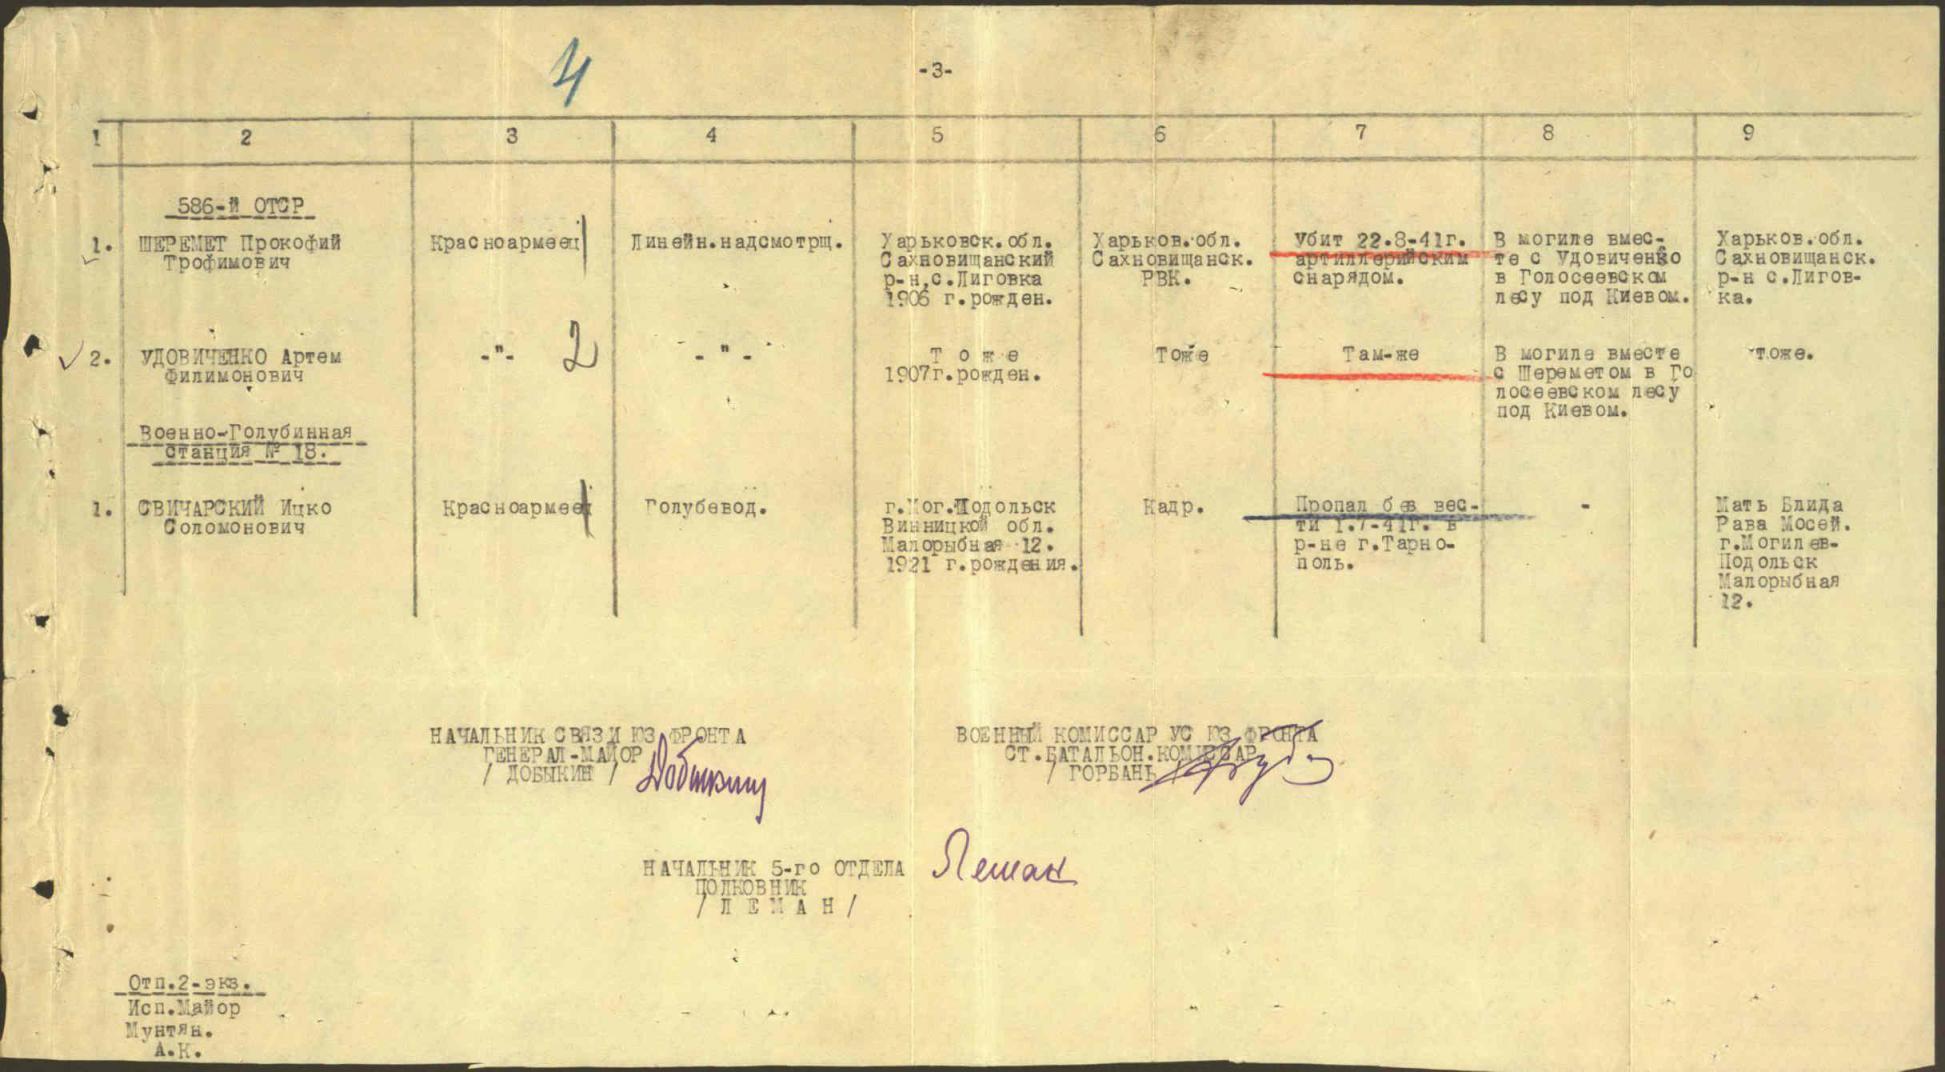 4
-3-
1 2 3 4 5 6 7 8 9
586-й ОТСР
1. ШЕРЕМЕТ Прокофий
Трофимович
Красноармеец
Линейн.надсмотрщ.
Харьковск.обл.
Сахновищанский
р-н,с.Лиговка
1906 г.рожден.
Харьков.обл.
Сахновищанск.
РВК.
Убит 22.8-41г.
артиллерийским
снарядом.
В могиле вмес-
те с Удовиченко
в Голосеевском
лесу под Киевом.
Харьков.обл.
Сахновищанск.
р-н с.Лигов-
ка.
2. УДОВИЧЕНКО Артем
Филимонович
-"- 2
-"-
Тоже
1907г.рожден.
Тоже
Там-же
В могиле вместе
с Шереметом в Го
лосеевском лесу
под Киевом.
тоже.
Военно-Голубинная
станция № 18.
1. СВИЧАРСКИЙ Ицко
Соломонович
Красноармеец
Голубевод.
г.Мог.Подольск
Винницкой обл.
Малорыбная 12.
1921 г.рождения.
Кадр.
Пропал без вес-
ти 1.7-41г. в
р-не г.Тарно-
поль.
-
Мать Блида
Рава Мосей.
г.Могилев-
Подольск
Малорыбная
12.
НАЧАЛЬНИК СВЯЗИ ЮЗ ФРОНТА
ГЕНЕРАЛ-МАЙОР
/ ДОБЫКИН / Добыкин
ВОЕННЫЙ КОМИССАР УС ЮЗ ФРОНТА
СТ.БАТАЛЬОН.КОМИССАР
/ ГОРБАНЬ
НАЧАЛЬНИК 5-го ОТДЕЛА Леман
ПОЛКОВНИК
/ Л Е М А Н /
Отп.2-экз.
Исп.Майор
Мунтян.
А.К.